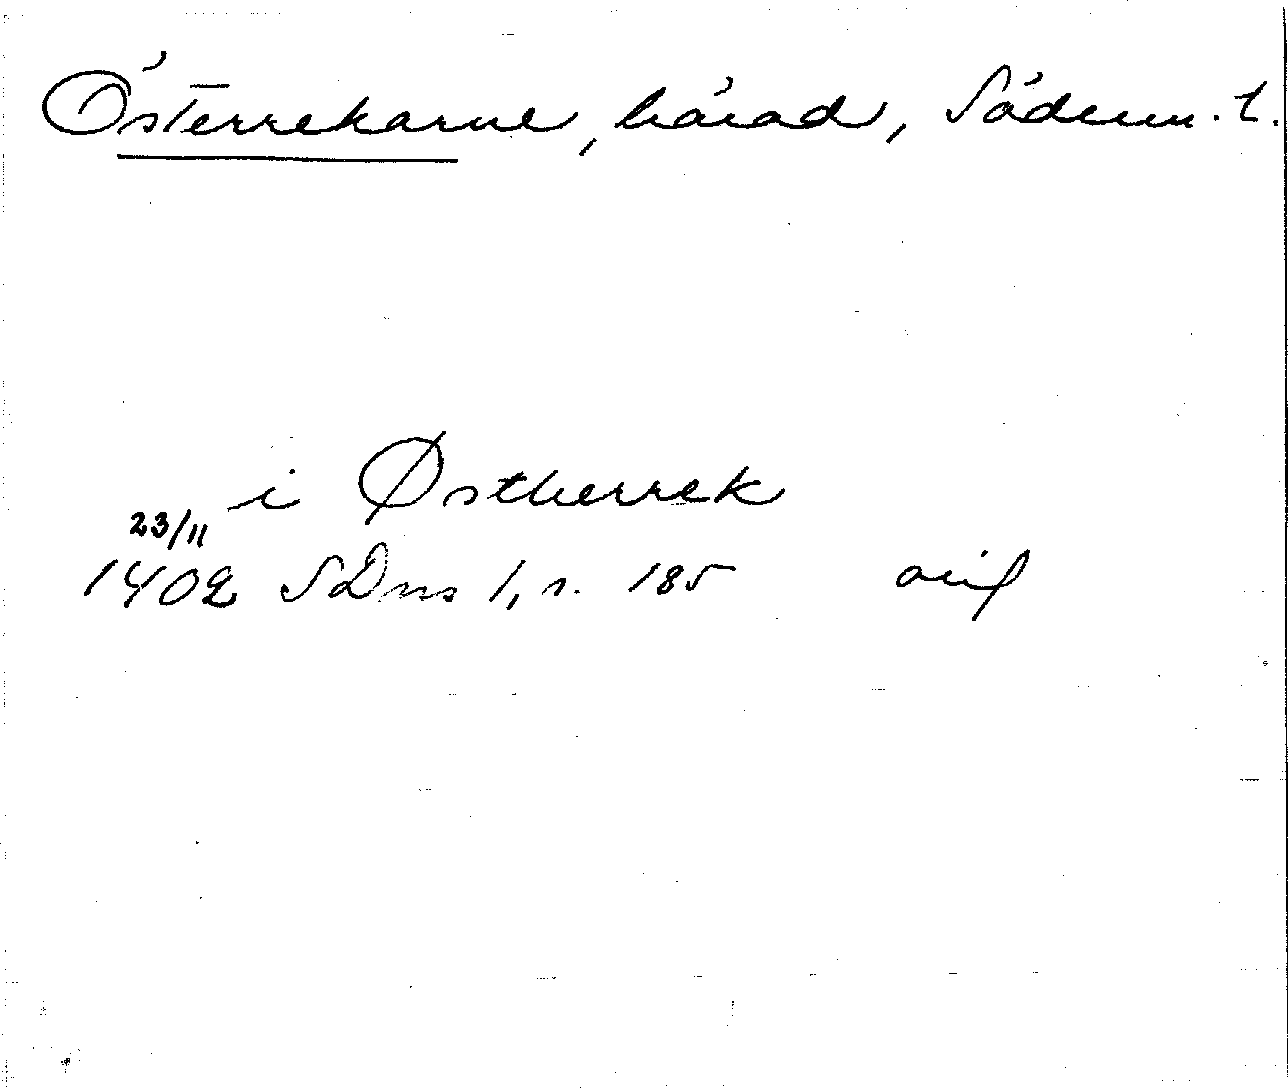 Österrekarne, härad, Söderm. l.
i Østherrek
23/11
1402 SDns 1, s. 185 orig